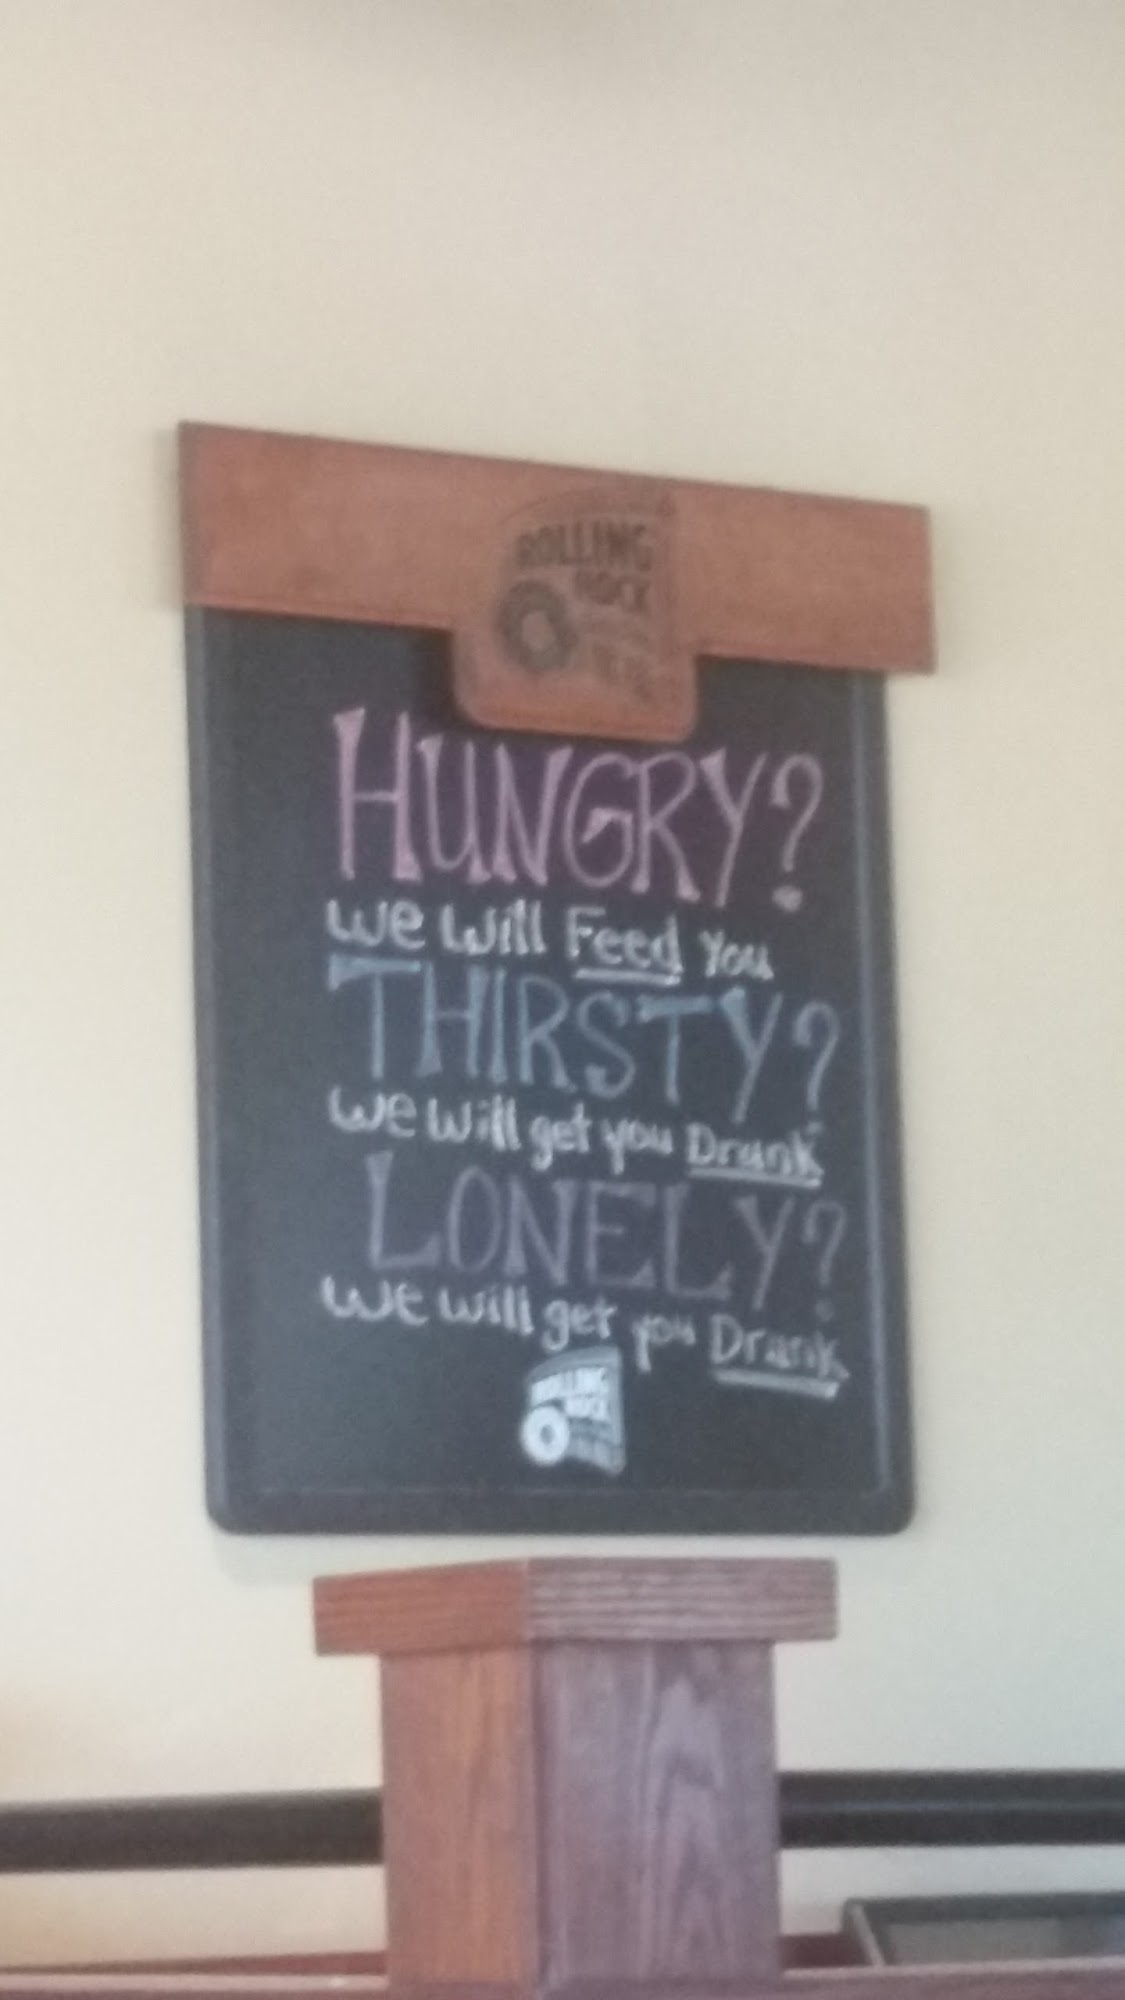 ROLLING
ROCK
HUNGRY?
We Will Feed You
THIRSTY?
We Will get you Drunk
LONELY?
We Will get you Drunk
ROLLING
ROCK